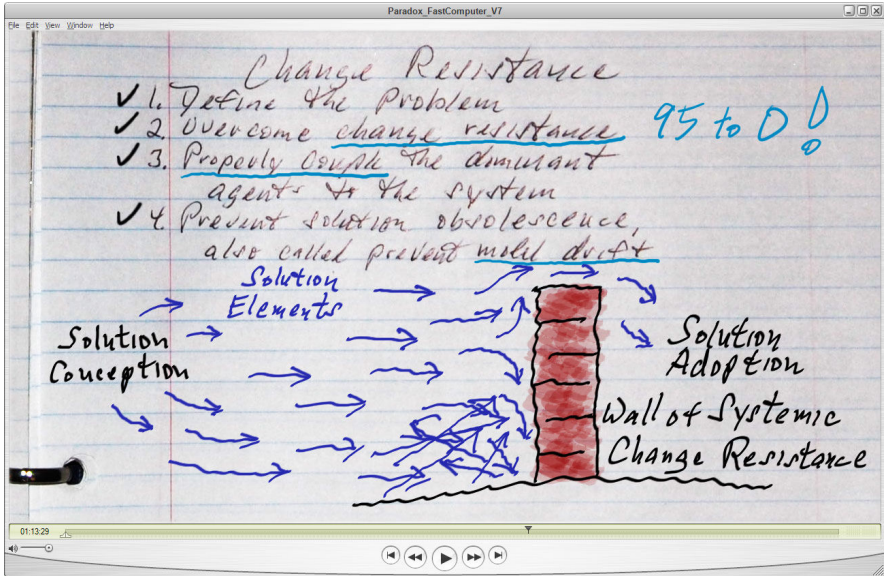 Paradox_FastComputer_V7
File Edit View Window Help
Change Resistance
✓ 1. Define the Problem
✓ 2. Overcome change resistance 95 to 0!
✓ 3. Properly couple the dominant
agents to the system
✓ 4. Prevent solution obsolescence,
also called prevent model drift
Solution
Elements
Solution
Conception
Solution
Adoption
Wall of Systemic
Change Resistance
01:13:29